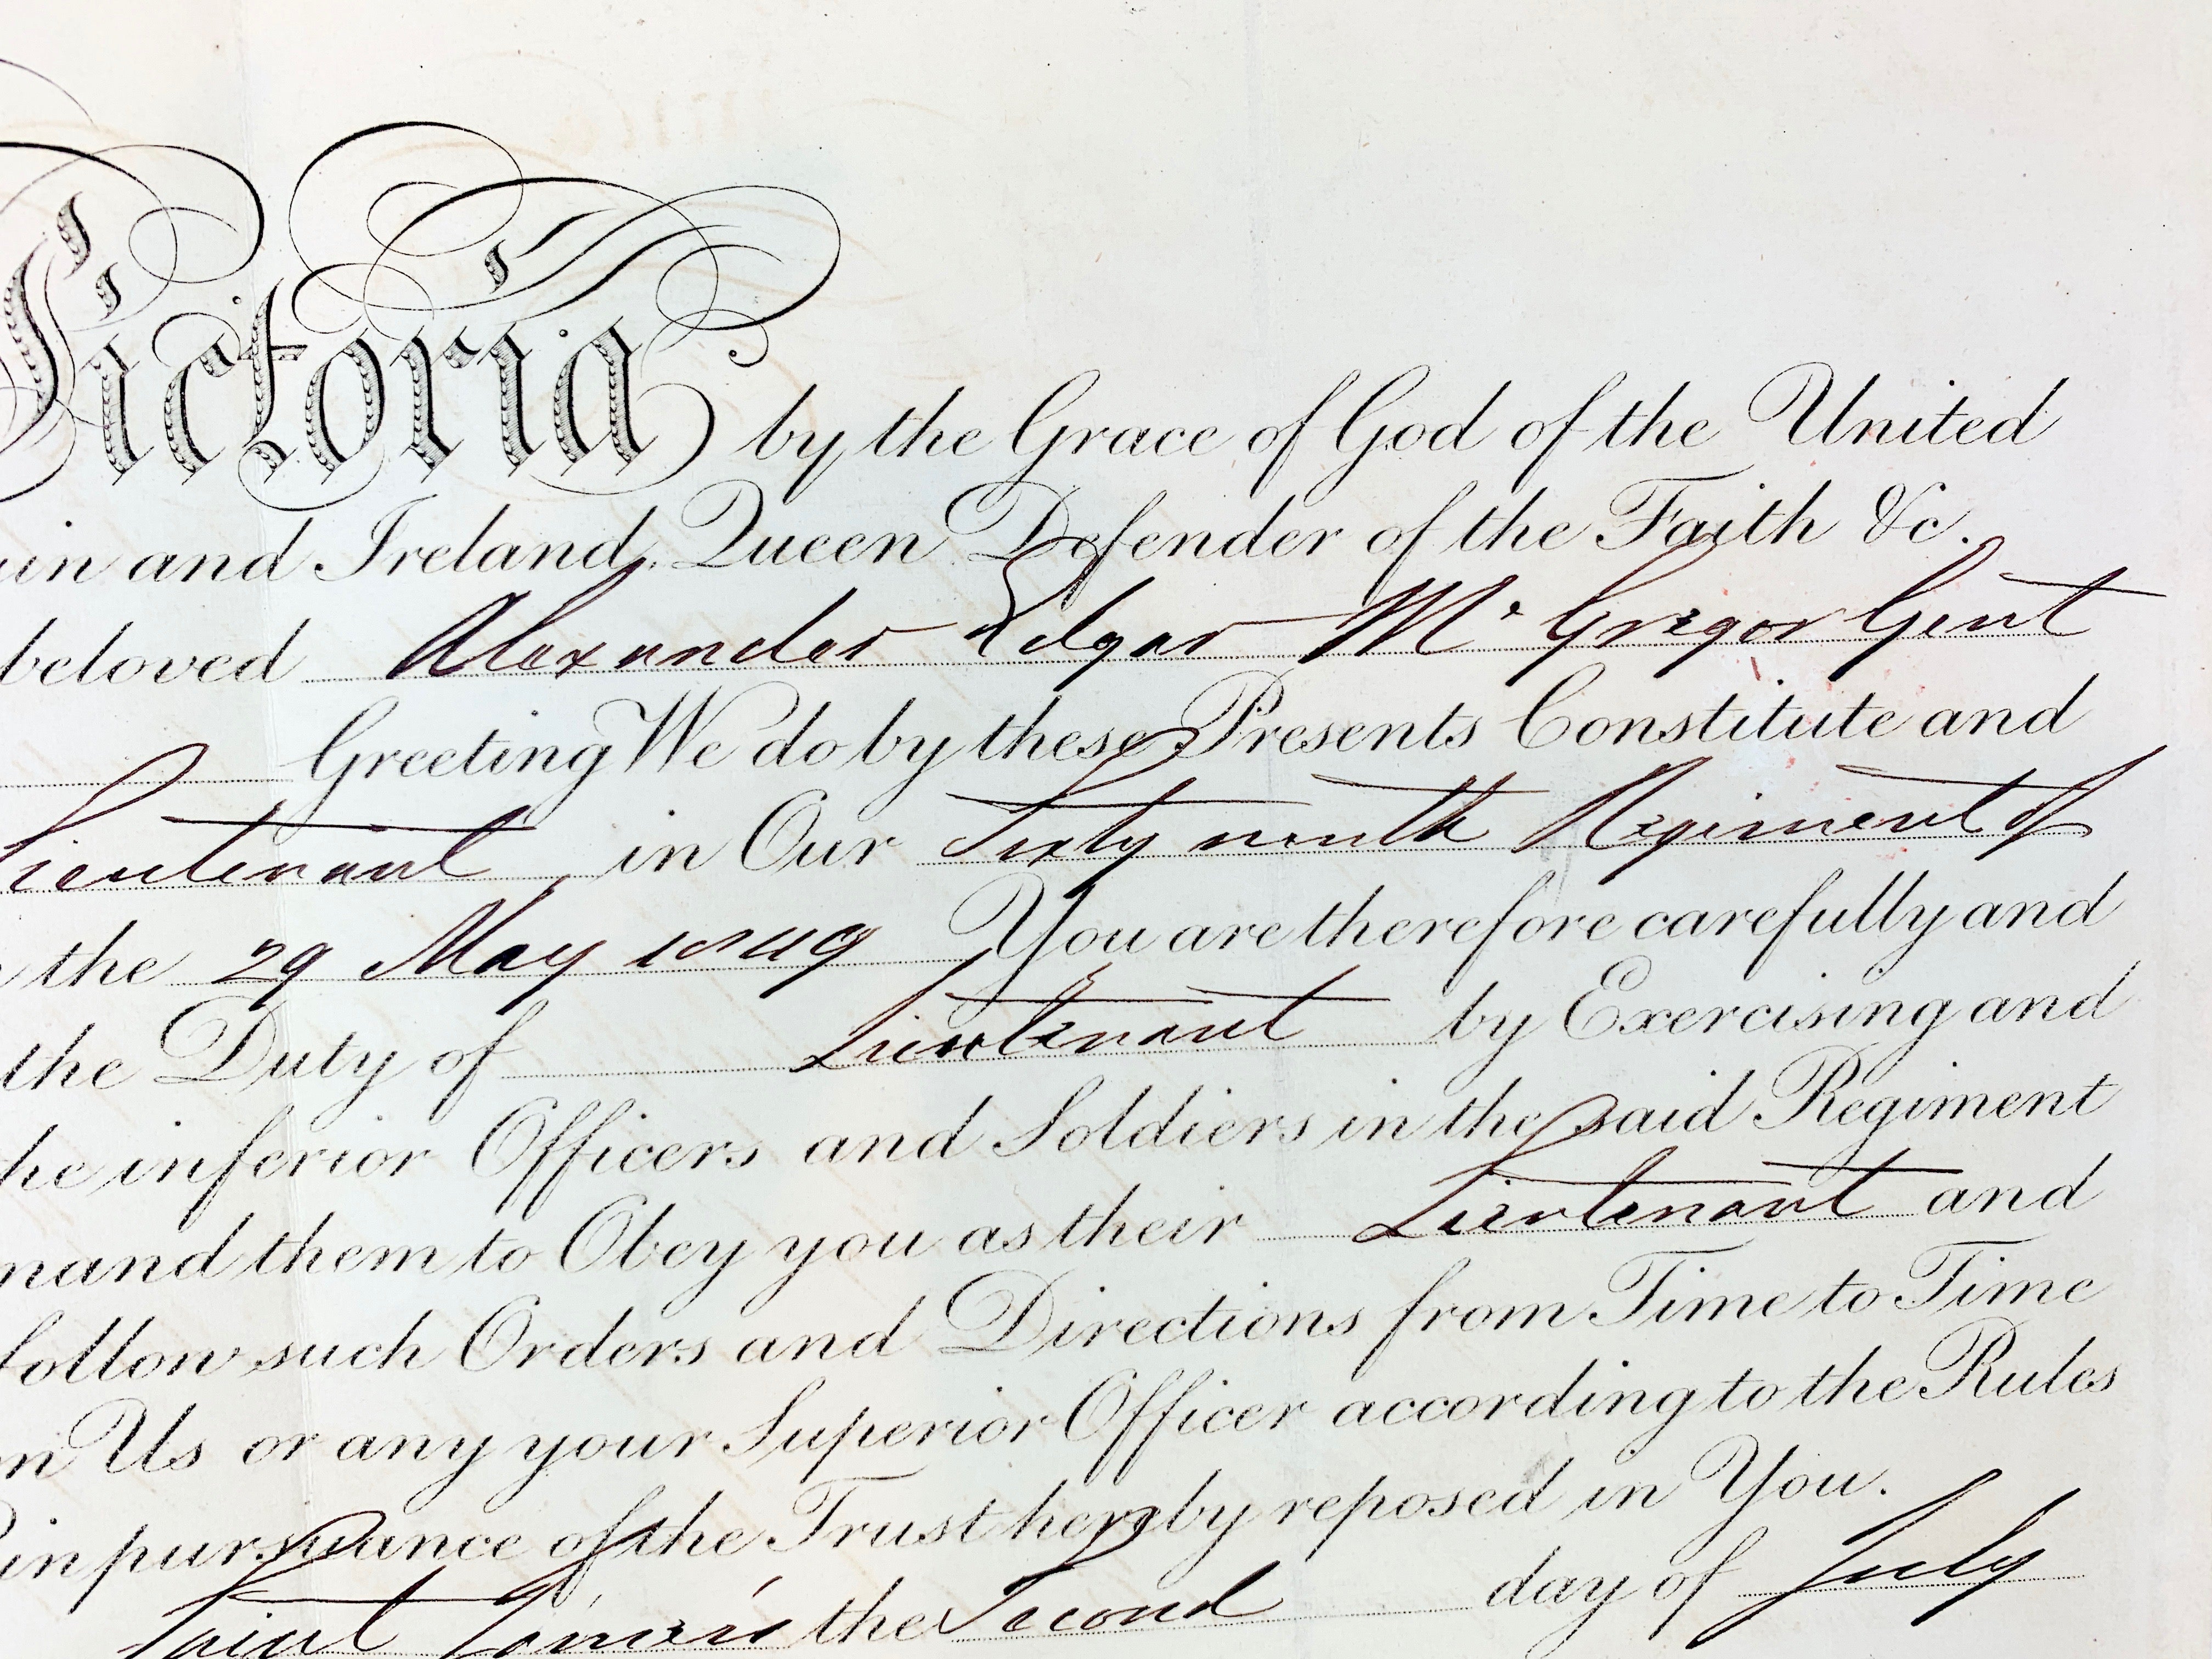 Victoria by the Grace of God of the United
ain and Ireland, Queen Defender of the Faith &c.
beloved Alexander Edgar McGregor Gent
Greeting We do by these Presents Constitute and
Lieutenant in Our Sixty ninth Regiment of
the 29 May 1849 You are therefore carefully and
the Duty of Lieutenant by Exercising and
he inferior Officers and Soldiers in the said Regiment
mand them to Obey you as their Lieutenant and
follow such Orders and Directions from Time to Time
m Us or any your Superior Officer according to the Rules
in pursuance of the Trust hereby reposed in You.
Saint James's the Second day of July